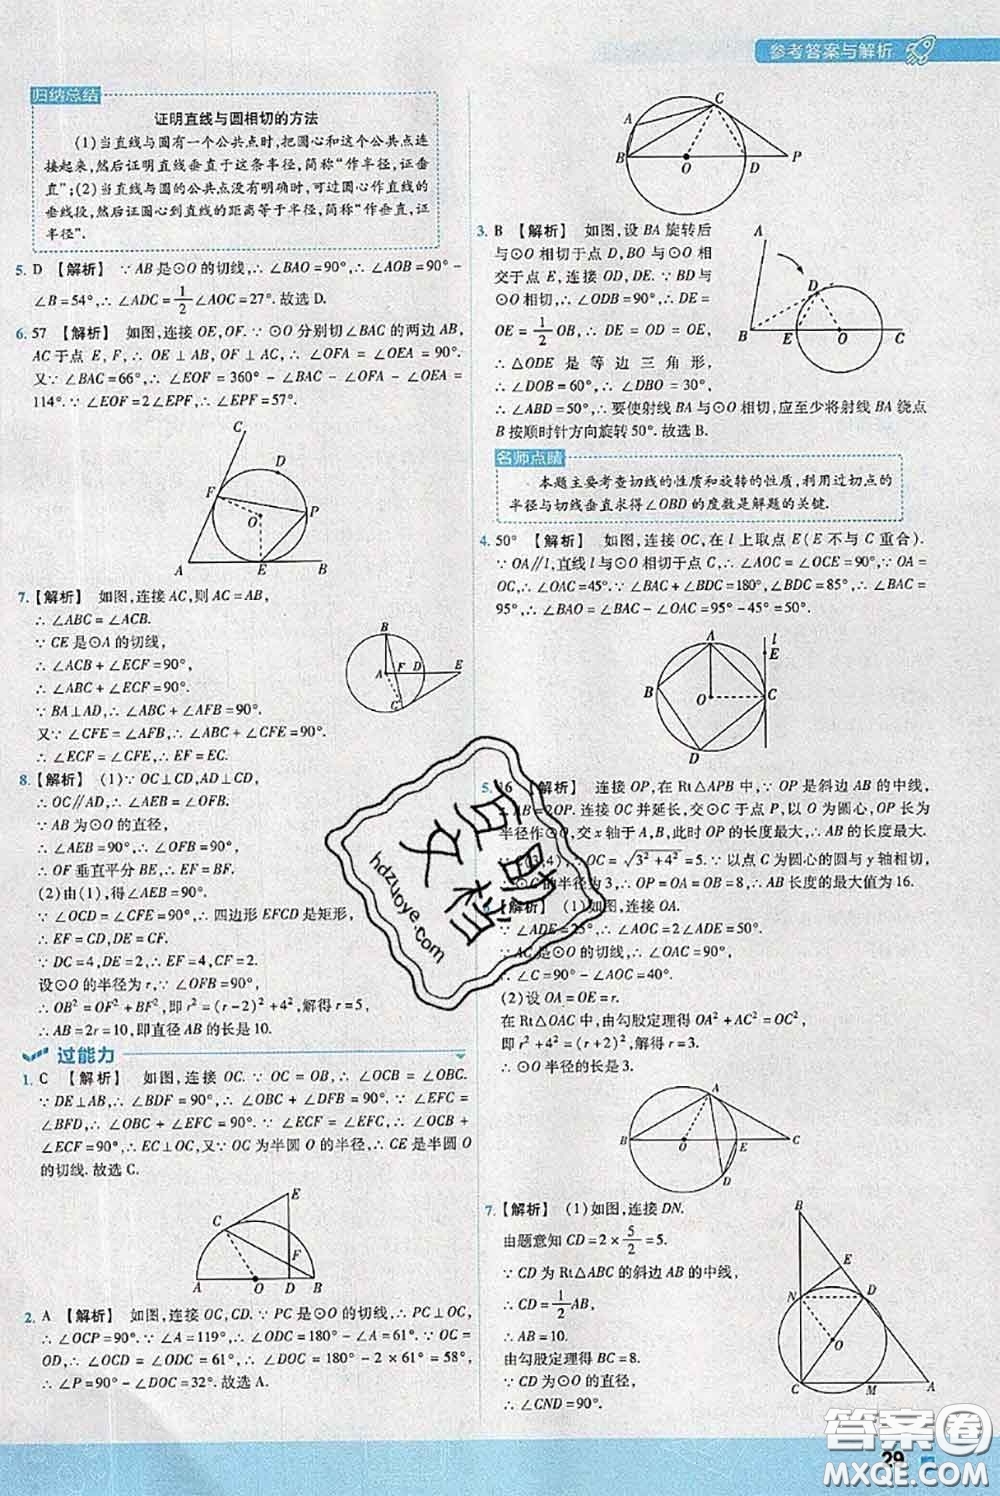 参考答案与解析
归纳总结
证明直线与圆相切的方法
(1)当直线与圆有一个公共点时,把圆心和这个公共点连
接起来,然后证明直线垂直于这条半径,简称“作半径,证垂
直”;(2)当直线与圆的公共点没有明确时,可过圆心作直线的
垂线段,然后证圆心到直线的距离等于半径,简称“作垂直,证
半径”.
5. D 【解析】 ∵AB是⊙O的切线,∴∠BAO=90°,∴∠AOB=90°-
∠B=54°,∴∠ADC=1/2∠AOC=27°.故选D.
6. 57 【解析】 如图,连接OE,OF.∵⊙O分别切∠BAC的两边AB,
AC于点E,F,∴OE⊥AB,OF⊥AC,∴∠OFA=∠OEA=90°.
又∵∠BAC=66°,∴∠EOF=360°-∠BAC-∠OFA-∠OEA=
114°.∵∠EOF=2∠EPF,∴∠EPF=57°.
C
D
F
P
O
A
E
B
7.【解析】 如图,连接AC,则AC=AB,
∴∠ABC=∠ACB.
∵CE是⊙A的切线,
∴∠ACB+∠ECF=90°,
∴∠ABC+∠ECF=90°.
∵BA⊥AD,∴∠ABC+∠AFB=90°.
又∵∠CFE=∠AFB,∴∠ABC+∠CFE=90°,
∴∠ECF=∠CFE,∴EF=EC.
B
A
F
D
E
C
8.【解析】 (1)∵OC⊥CD,AD⊥CD,
∴OC∥AD,∴∠AEB=∠OFB.
∵AB为⊙O的直径,
∴∠AEB=90°,∴∠OFB=90°,
∴OF垂直平分BE,∴EF=BF.
(2)由(1),得∠AEB=90°,
∵∠OCD=∠CFE=90°,∴四边形EFCD是矩形,
∴EF=CD,DE=CF.
∵DC=4,DE=2,∴EF=4,CF=2.
设⊙O的半径为r,∵∠OFB=90°,
∴OB²=OF²+BF²,即r²=(r-2)²+4²,解得r=5,
∴AB=2r=10,即直径AB的长是10.
过能力
1. C 【解析】 如图,连接OC.∵OC=OB,∴∠OCB=∠OBC.
∵DE⊥AB,∴∠BDF=90°,∴∠OBC+∠BFD=90°.∵∠EFC=
∠BFD,∴∠OBC+∠EFC=90°.∵∠ECF=∠EFC,∴∠OCB
+∠ECF=90°,∴EC⊥OC,又∵OC为半圆O的半径,∴CE是半圆O
的切线.故选C.
E
C
F
A
O
D
B
2. A 【解析】 如图,连接OC,CD.∵PC是⊙O的切线,∴PC⊥OC,
∴∠OCP=90°.∵∠A=119°,∴∠ODC=180°-∠A=61°.∵OC=
OD,∴∠OCD=∠ODC=61°,∴∠DOC=180°-2×61°=58°,
∴∠P=90°-∠DOC=32°.故选A.
C
A
B
O
D
P
3. B 【解析】 如图,设BA旋转后
与⊙O相切于点D,BO与⊙O相
交于点E,连接OD,DE.∵BD与
⊙O相切,∴∠ODB=90°.∵DE=
OE=1/2OB,∴DE=OE=OD,
∴△ODE是等边三角形,
∴∠DOB=60°,∴∠DBO=30°,
∴∠ABD=50°,∴要使射线BA与⊙O相切,应至少将射线BA绕点
B按顺时针方向旋转50°.故选B.
A
D
B
E
O
C
名师点睛
本题主要考查切线的性质和旋转的性质,利用过切点的
半径与切线垂直求得∠OBD的度数是解题的关键.
4. 50° 【解析】 如图,连接OC,在l上取点E(E不与C重合).
∵OA∥l,直线l与⊙O相切于点C,∴∠AOC=∠OCE=90°.∵OA=
OC,∴∠OAC=45°.∵∠BAC+∠BDC=180°,∠BDC=85°,∴∠BAC=
95°,∴∠BAO=∠BAC-∠OAC=95°-45°=50°.
A
l
E
B
O
C
D
5. 16 【解析】 连接OP,在Rt△APB中,∵OP是斜边AB的中线,
∴AB=2OP.连接OC并延长,交⊙C于点P,以O为圆心,OP长为
半径作⊙O,交x轴于A,B,此时OP的长度最大,∴AB的长度最大.
(3,4),∴OC=√3²+4²=5.∵以点C为圆心的圆与y轴相切,
∴⊙C的半径为3,∴OP=OA=OB=8,∴AB长度的最大值为16.
【解析】 (1)如图,连接OA.
∵∠ADE=25°,∴∠AOC=2∠ADE=50°.
∵AC是⊙O的切线,∴∠OAC=90°,
∴∠C=90°-∠AOC=40°.
(2)设OA=OE=r.
在Rt△OAC中,由勾股定理得OA²+AC²=OC²,
即r²+4²=(r+2)²,解得r=3.
∴⊙O半径的长是3.
A
B
O
E
C
D
7.【解析】 (1)如图,连接DN.
由题意知CD=2×5/2=5.
∵CD为Rt△ABC的斜边AB的中线,
∴CD=1/2AB,
∴AB=10.
由勾股定理得BC=8.
∵CD为⊙O的直径,
∴∠CND=90°.
B
E
N
D
O
C
M
A
hdzuoye.com
答案圈
MXQE.COM
29